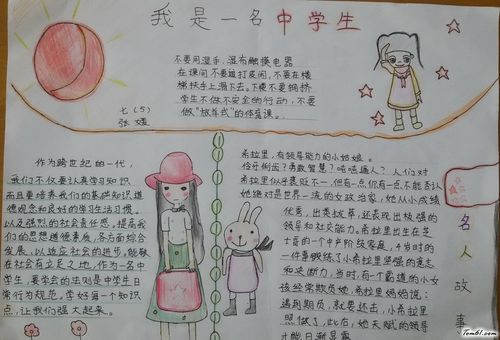 我是一名中学生
不要用湿手、湿布触摸电器
在课间不要追打皮闹,不要在楼
梯扶手上溜下去。下楼不要拥挤
学生不做不安全的行动,不要
做"放羊式"的体育课。
七(5)
张
作为跨世纪的一代,
我们不仅要认真学习知识
而且要培养我们的基础知识道
德观念和良好的学习生活习惯。
以及强烈的社会责任感,提高我
们的思想道德素质,各方面综合
发展,以适应社会的进步,能够
在社会有立足之地,作为一名中
学生,要学会的法则是中学生日
常行为规范,学好每一个知识
点,让我们强大起来。
希拉里,有领导能力的小姑娘。
伶牙俐齿?勇敢智慧?咄咄逼人?人们对
希拉里似乎褒贬不一,但有一点你有一点不能否认
她绝对是世界一流的女政治家,她从小成绩
优秀,出类拔萃,还表现出极强的
领导和社交能力。希拉里出生在芝
士哥的一个中产阶级家庭,4岁时的
一件事锻炼了小希拉里坚强的意志
和决断力,当时,有个霸道的小女
孩经常欺负她,希拉里妈妈说:
遇到期负,就要还击,小希拉里
照做了,此后,她天赋的领导
才能日渐显露
名人故事
Tom61.com